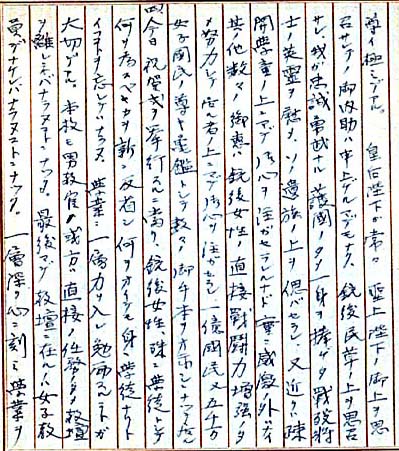 尊イ極ミデアル。 皇后陛下ガ常々 聖上陛下ノ御上ヲ思
召サレテノ御内助ハ申上ゲルマデモナク、銃後民草ノ上ヲ思召
サレ、我ガ忠誠勇武ナル護国ノタメ一身ヲ捧ゲタ戦歿将
士ノ英霊ヲ慰メ ソノ遺族ノ上ヲ偲バセラレ 又近クハ疎
開学童ノ上ニマデ御心ヲ注ガセラレルナド 重ニ感激ノ外ハナイ
其ノ他数々ノ御恵ハ 銃後女性ノ直接戦闘力増強ノタ
メ努力シテ居ル者ノ上ニマデ御心ヲ注ガセラレ 一億国民又五千万
女子国民ノ導キ亀鑑トシテ数々ノ御手本ヲオ示シナサレ
今日祝賀式ヲ挙行スルニ当リ、銃後女性 殊ニ学徒トシテ
何ヲ為スベキカ 新ニ反省シ 何ヲオイテモ身ハ学徒ナリト
イフコトヲ忘レテハナラヌ 学業ニ一層力ヲ入レ勉励スルコトガ
大切デアル。本校モ男教官ノ或方ハ直接ノ任務ノタメ教壇
ヲ離レネバナラヌコトニナッタ。最後マデ教壇ニ在ルハ女子教
員デナケレバナラヌコトニナッタ。一層深ク心ニ刻ミ学業ヲ